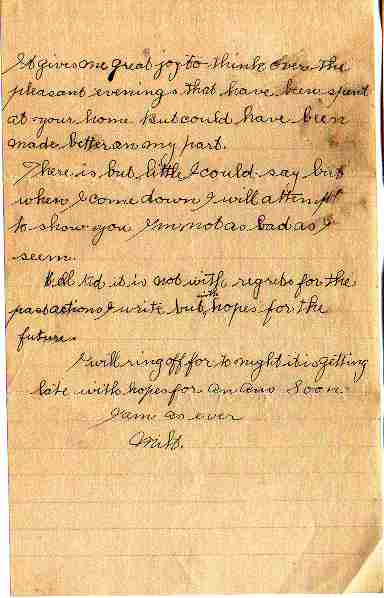 It gives me great joy to think over the
pleasant evenings that have been spent
at your home But could have been
made better on my part.
There is but little I could say but
when I come down I will attempt
to show you I'm not as bad as I
seem.
Well Kid it is not with regrets for the
past actions I write but with hopes for the
future.
I will ring off for to night it is getting
late with hopes for an ans soon.
I am as ever